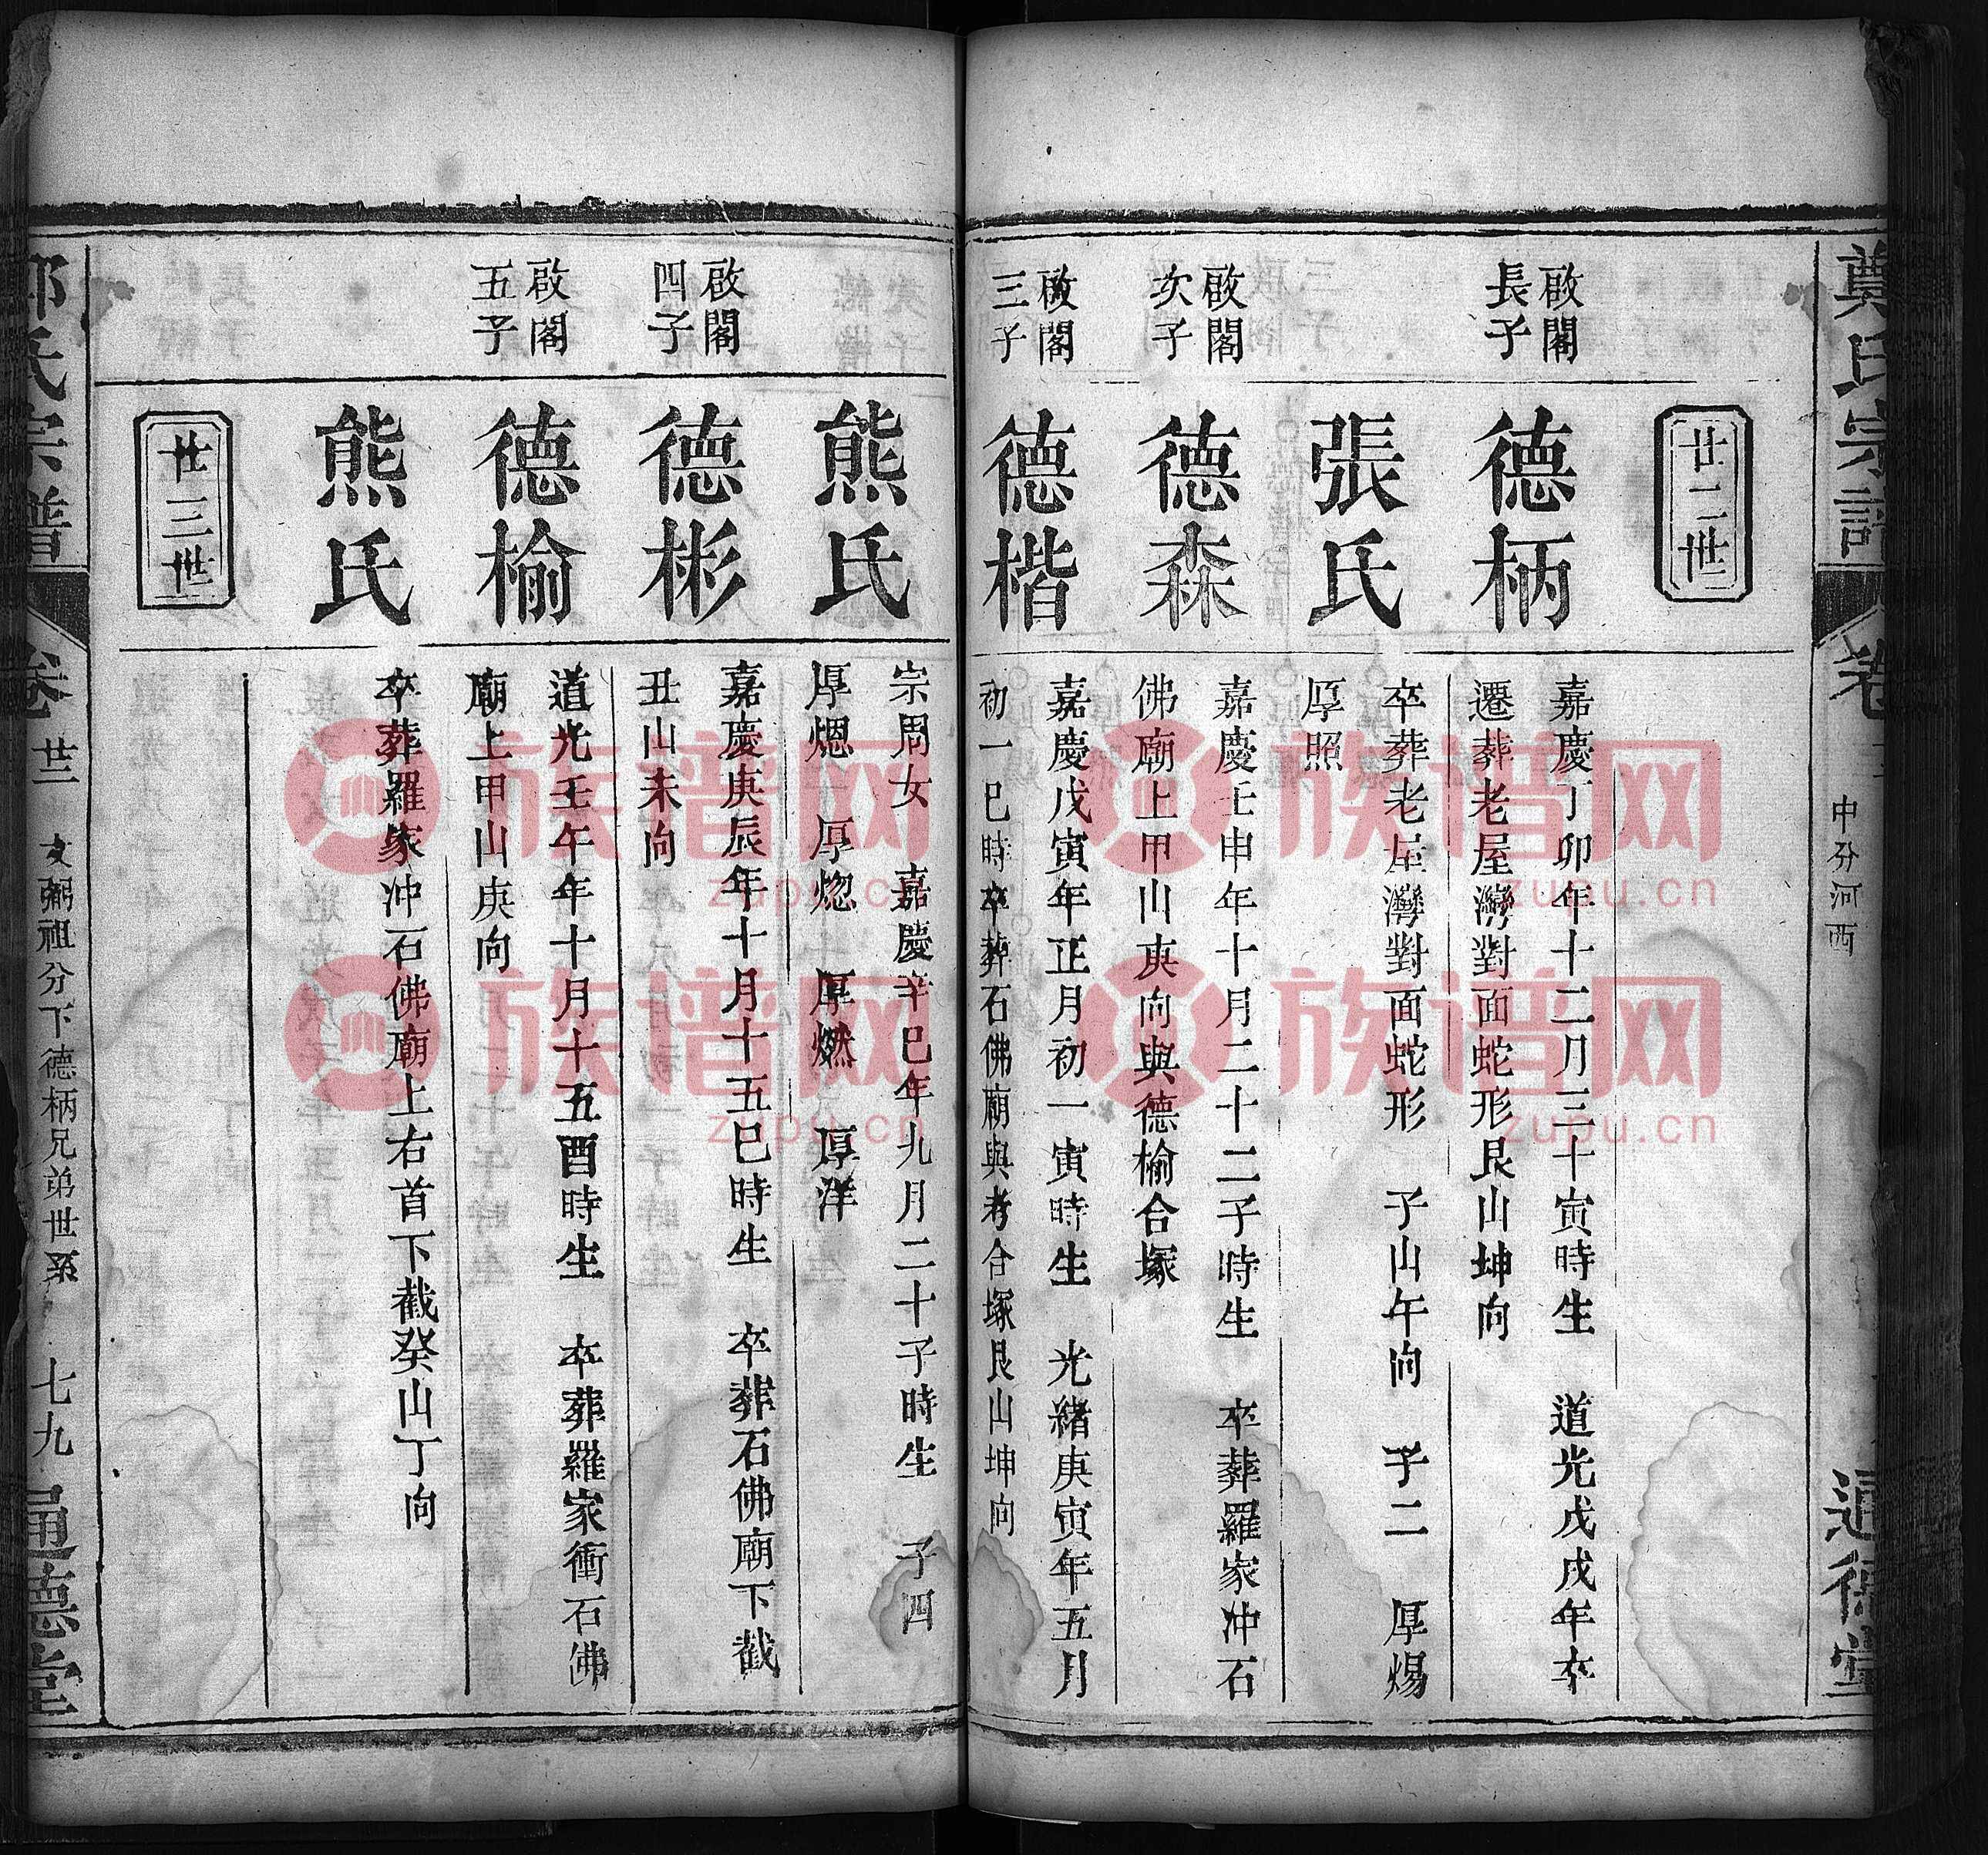 鄭氏宗譜
卷
中分河西
通德堂
廿二世
啟閣
長子
德柄
嘉慶丁卯年十二月三十寅時生 道光戊戌年卒
遷葬老屋灣對面蛇形艮山坤向
張氏
卒葬老屋灣對面蛇形 子山午向 子二 厚煬
厚照
啟閣
次子
德森
嘉慶壬申年十月二十二子時生 卒葬羅家冲石
佛廟上甲山庚向與德榆合塚
啟閣
三子
德楷
嘉慶戊寅年正月初一寅時生 光緒庚寅年五月
初一巳時卒葬石佛廟與考合塚艮山坤向
熊氏
宗周女 嘉慶辛巳年九月二十子時生 子四
厚熜 厚焧 厚燃 厚洋
啟閣
四子
德彬
嘉慶庚辰年十月十五巳時生 卒葬石佛廟下截
丑山未向
啟閣
五子
德榆
道光壬午年十月十五酉時生 卒葬羅家衝石佛
廟上甲山庚向
熊氏
卒葬羅家冲石佛廟上右首下截癸山丁向
廿三世
氏宗譜
卷廿二 文弼祖分下德柄兄弟世系 七九
通德堂
族譜网
zupu.cn
族譜网
zupu.cn
族譜网
zupu.cn
族譜网
zupu.cn